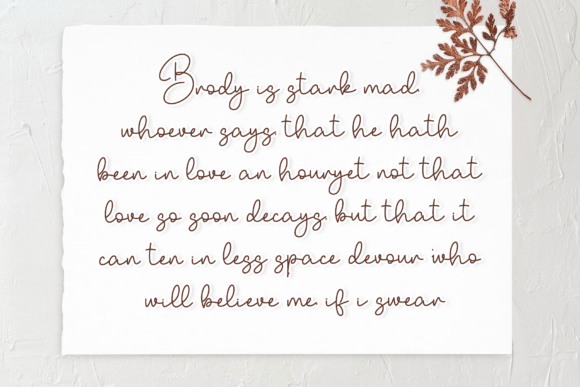 Brody is stark mad
whoever says that he hath
been in love an houryet not that
love so soon decays but that it
can ten in less space devour who
will believe me if i swear